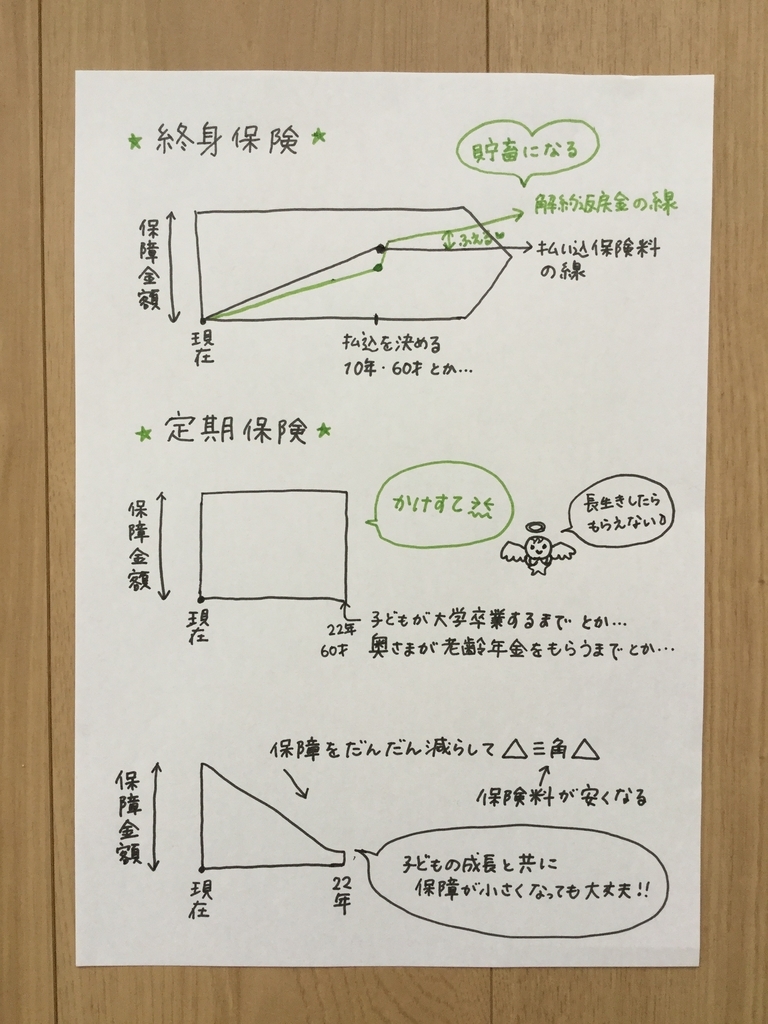 ★ 終身保険 ★
貯畜になる
解約返戻金の線
ふえる
払い込保険料
の線
保障金額
現在
払込を決める
10年・60才とか…
★ 定期保険 ★
かけすて
長生きしたら
もらえない
保障金額
現在
22年
60才
子どもが大学卒業するまでとか…
奥さまが老齢年金をもらうまでとか…
保障をだんだん減らして△三角△
保険料が安くなる
保障金額
現在
22年
子どもの成長と共に
保障が小さくなっても大丈夫!!